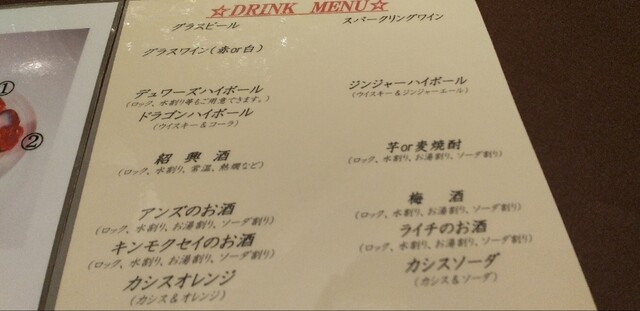 ☆DRINK MENU☆
グラスビール スパークリングワイン
グラスワイン(赤or白)
デュワーズハイボール ジンジャーハイボール
(ロック、水割り等もご用意できます。) (ウイスキー&ジンジャーエール)
ドラゴンハイボール
(ウイスキー&コーラ)
紹興酒 芋or麦焼酎
(ロック、水割り、常温、熱燗など) (ロック、水割り、お湯割り、ソーダ割り)
アンズのお酒 梅酒
(ロック、水割り、お湯割り、ソーダ割り) (ロック、水割り、お湯割り、ソーダ割り)
キンモクセイのお酒 ライチのお酒
(ロック、水割り、お湯割り、ソーダ割り) (ロック、水割り、お湯割り、ソーダ割り)
カシスオレンジ カシスソーダ
(カシス&オレンジ) (カシス&ソーダ)
①
②